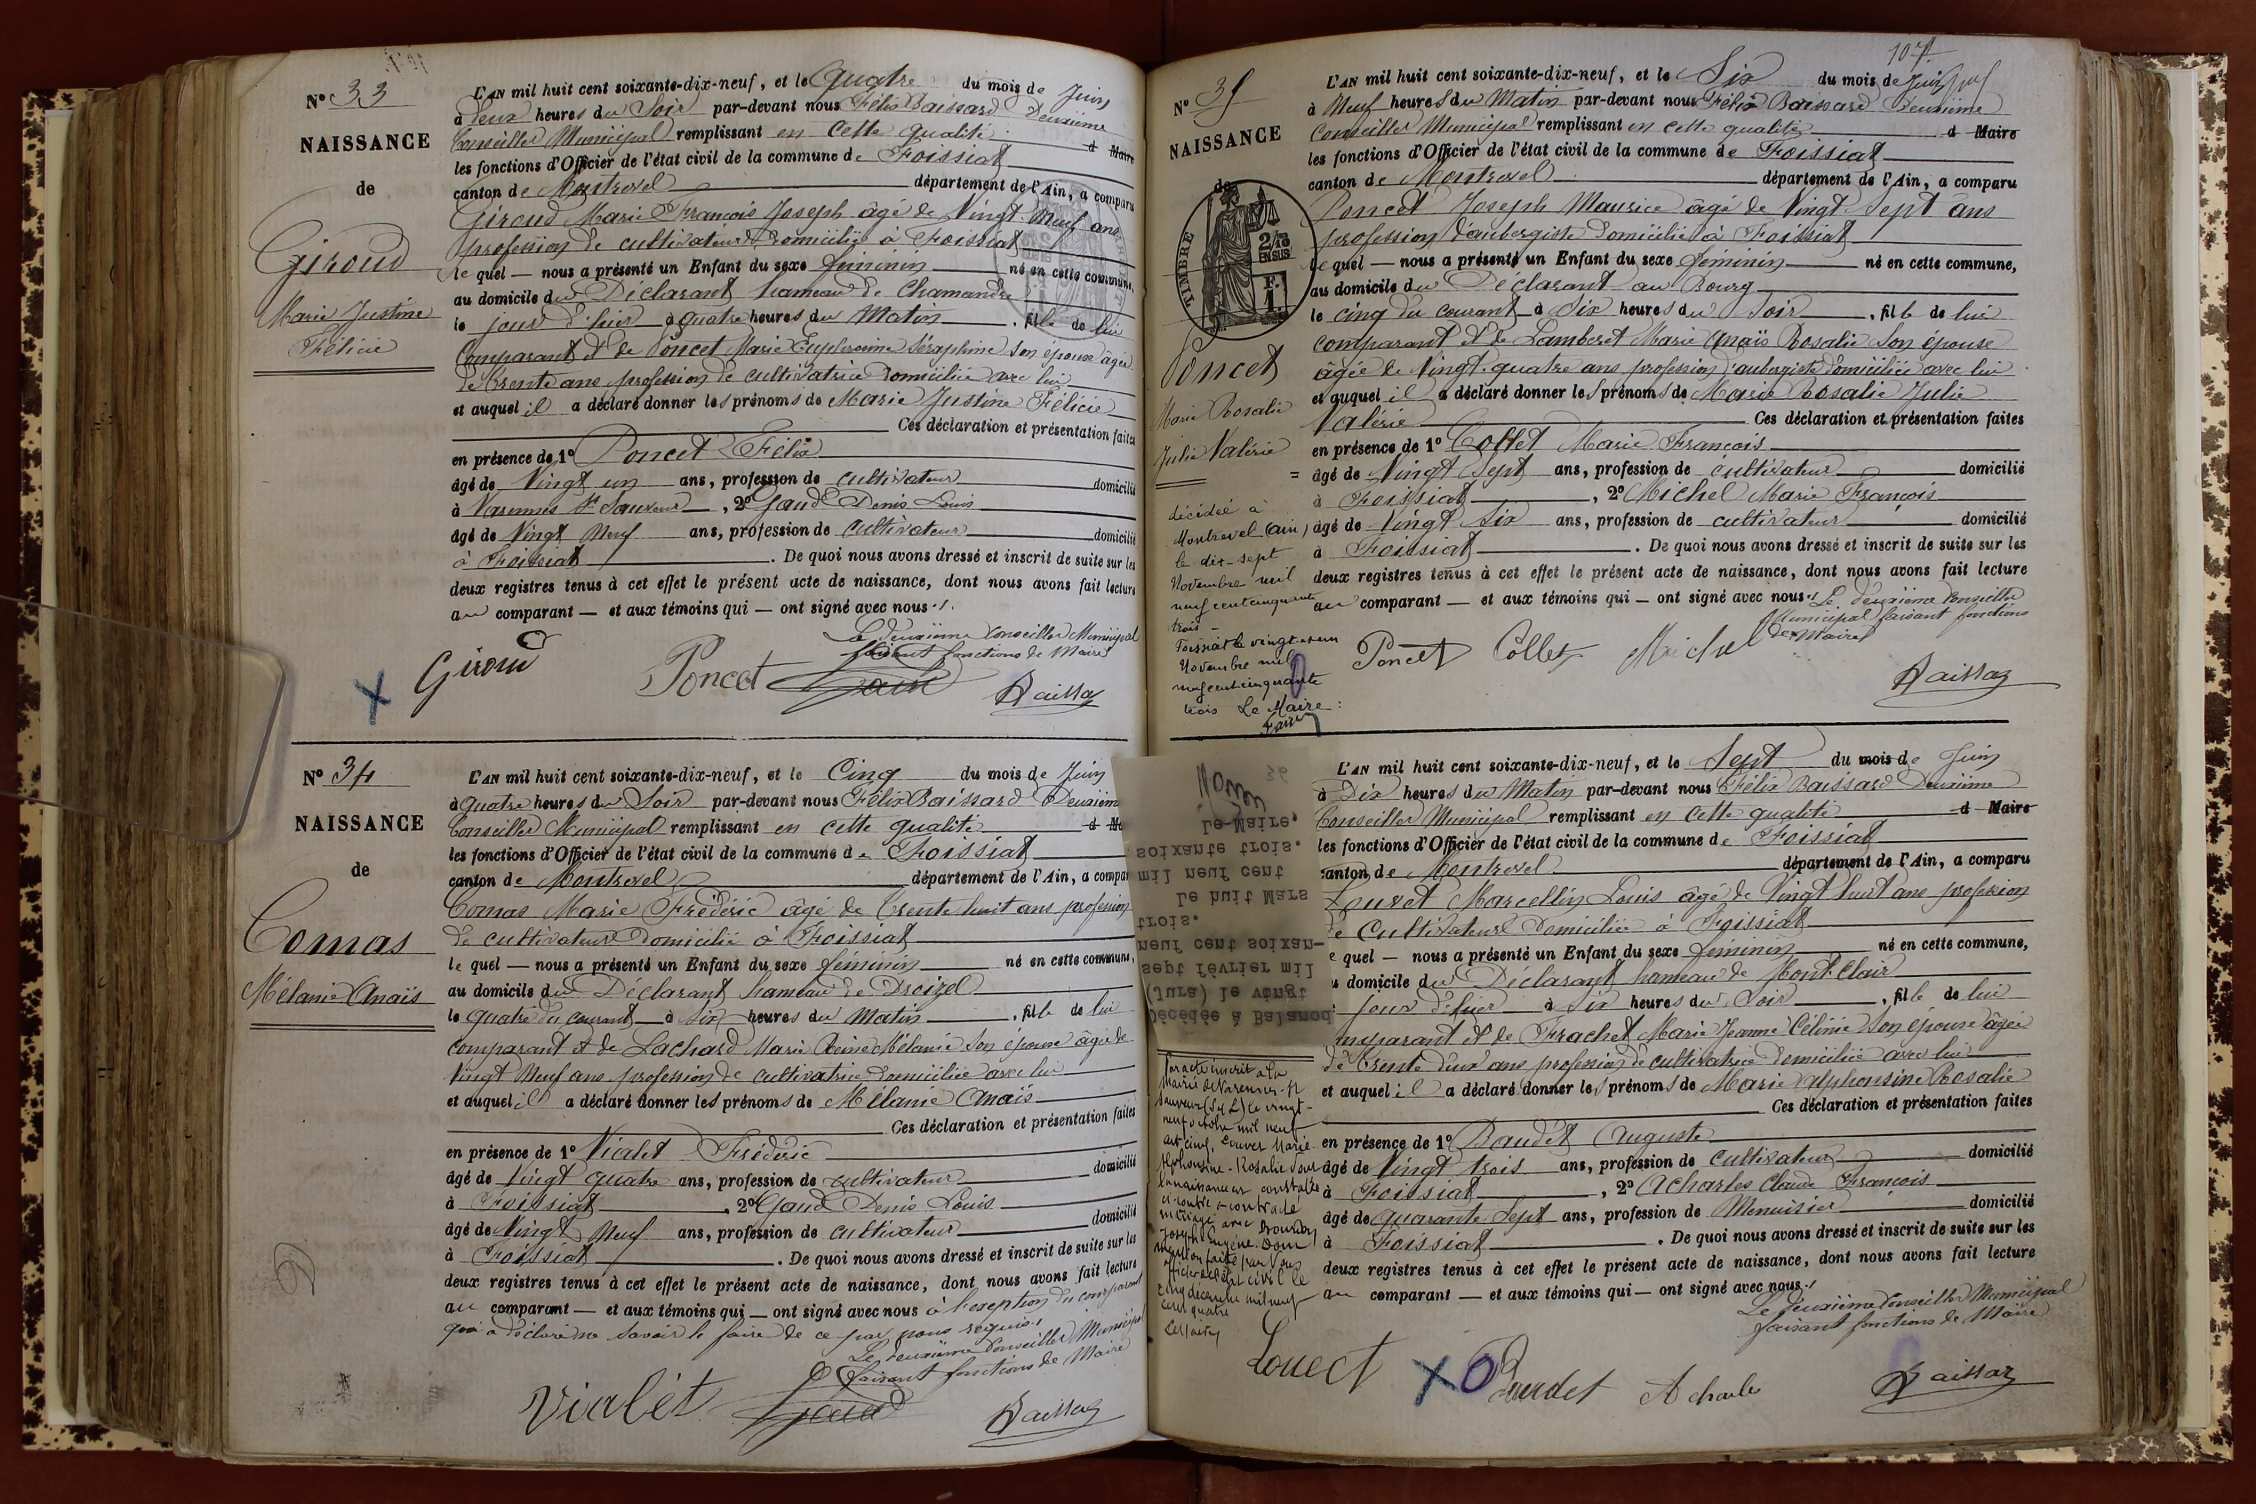 N° 33
NAISSANCE
de
Giroud
Marie Justine
Félicie
L'AN mil huit cent soixante-dix-neuf, et le Quatre du mois de Juin
à deux heures du Soir par-devant nous Félix Baissard Deuxième
Conseiller Municipal remplissant en cette qualité d Maire
les fonctions d'Officier de l'état civil de la commune de Foissiat
canton de Montrevel département de l'Ain, a comparu
Giroud Marie François Joseph âgé de Vingt Neuf ans
profession de cultivateur domicilié à Foissiat
le quel — nous a présenté un Enfant du sexe féminin né en cette commune,
au domicile du Déclarant hameau de Chamandre
le jour d'hier à quatre heures du Matin , fille de lui
Comparant et de Poncet Marie Euphrosine Séraphine son épouse âgée
de trente ans profession de cultivatrice domiciliée avec lui
et auquel il a déclaré donner les prénoms de Marie Justine Félicie
Ces déclaration et présentation faites
en présence de 1° Poncet Félix
âgé de Vingt un ans, profession de cultivateur domicilié
à Varennes St Sauveur , 2° Gaud Denis Louis
âgé de Vingt Neuf ans, profession de cultivateur domicilié
à Foissiat . De quoi nous avons dressé et inscrit de suite sur les
deux registres tenus à cet effet le présent acte de naissance, dont nous avons fait lecture
au comparant — et aux témoins qui — ont signé avec nous.
Le deuxième Conseiller Municipal
faisant fonctions de Maire
Giroud Poncet Gaud Baissard
N° 34
NAISSANCE
de
Comas
Mélanie Anaïs
L'AN mil huit cent soixante-dix-neuf, et le Cinq du mois de Juin
à quatre heures du Soir par-devant nous Félix Baissard Deuxième
Conseiller Municipal remplissant en cette qualité d Ma
les fonctions d'Officier de l'état civil de la commune de Foissiat
canton de Montrevel département de l'Ain, a compar
Comas Marie Frédéric âgé de trente huit ans profession
de cultivateur domicilié à Foissiat
le quel — nous a présenté un Enfant du sexe féminin né en cette commune,
au domicile du Déclarant hameau de Dreizel
le quatre du courant à six heures du Matin , fille de lui
comparant et de Lachard Marie Reine Mélanie son épouse âgée de
Vingt Neuf ans profession de cultivatrice domiciliée avec lui
et auquel il a déclaré donner les prénoms de Mélanie Anaïs
Ces déclaration et présentation faites
en présence de 1° Vialet Frédéric
âgé de Vingt quatre ans, profession de cultivateur domicilié
à Foissiat , 2° Gaud Denis Louis
âgé de Vingt Neuf ans, profession de cultivateur domicilié
à Foissiat . De quoi nous avons dressé et inscrit de suite sur les
deux registres tenus à cet effet le présent acte de naissance, dont nous avons fait lecture
au comparant — et aux témoins qui — ont signé avec nous à l'exception du comparant
qui a déclaré ne savoir le faire de ce par nous requis.
Le deuxième Conseiller Municipal
faisant fonctions de Maire
Vialet Gaud Baissard
107
N° 35
NAISSANCE
de
TIMBRE
2/10 EN SUS
F. 1
Poncet
Marie Rosalie
Julie Valérie
décédée à
Montrevel (Ain)
le dix-sept
Novembre mil
neuf cent cinquante
trois -
Foissiat le vingt et un
Novembre mil
neuf cent cinquante
trois Le Maire :
L'AN mil huit cent soixante-dix-neuf, et le Six du mois de Juin
à Neuf heures du Matin par-devant nous Félix Baissard Deuxième
Conseiller Municipal remplissant en cette qualité d Maire
les fonctions d'Officier de l'état civil de la commune de Foissiat
canton de Montrevel département de l'Ain, a comparu
Poncet Joseph Maurice âgé de Vingt Sept ans
profession d'aubergiste domicilié à Foissiat
le quel — nous a présenté un Enfant du sexe féminin né en cette commune,
au domicile du Déclarant au Bourg
le cinq du courant à Six heures du Soir , fille de lui
comparant et de Lamberet Marie Anaïs Rosalie son épouse
âgée de Vingt quatre ans profession d'aubergiste domiciliée avec lui
et auquel il a déclaré donner les prénoms de Marie Rosalie Julie
Valérie Ces déclaration et présentation faites
en présence de 1° Collet Marie François
âgé de Vingt Sept ans, profession de cultivateur domicilié
à Foissiat , 2° Michel Marie François
âgé de Vingt Six ans, profession de cultivateur domicilié
à Foissiat . De quoi nous avons dressé et inscrit de suite sur les
deux registres tenus à cet effet le présent acte de naissance, dont nous avons fait lecture
au comparant — et aux témoins qui — ont signé avec nous. Le deuxième Conseiller
Municipal faisant fonctions
de Maire
Poncet Collet Michel Baissard
36
Décédée à Balanod
(Jura) le vingt
sept février mil
neuf cent soixan-
trois.
Le huit Mars
mil neuf cent
soixante trois.
Le Maire,
Par acte inscrit à la
Mairie de Varennes-St
Sauveur (S & L) le vingt-
neuf octobre mil neuf
cent cinq, Louvet Marie
Alphonsine-Rosalie dont
la naissance est constatée
ci-contre a contracté
mariage avec Bourdon
Joseph Eugène. Dont
mention faite par nous
officier de l'état civil le
cinq décembre mil neuf
cent quatre
L'AN mil huit cent soixante-dix-neuf, et le Sept du mois de Juin
à Dix heures du Matin par-devant nous Félix Baissard Deuxième
Conseiller Municipal remplissant en cette qualité d Maire
les fonctions d'Officier de l'état civil de la commune de Foissiat
canton de Montrevel département de l'Ain, a comparu
Louvet Marcellin Louis âgé de Vingt huit ans profession
de Cultivateur domicilié à Foissiat
e quel — nous a présenté un Enfant du sexe féminin né en cette commune,
u domicile du Déclarant hameau de Mont-Clair
jour d'hier à Six heures du Soir , fille de lui
comparant et de Frachet Marie Jeanne Célinie son épouse âgée
de trente deux ans profession de cultivatrice domiciliée avec lui
et auquel il a déclaré donner les prénoms de Marie Alphonsine Rosalie
Ces déclaration et présentation faites
en présence de 1° Baudet Auguste
âgé de Vingt trois ans, profession de cultivateur domicilié
à Foissiat , 2° Acharles Claude François
âgé de quarante Sept ans, profession de Menuisier domicilié
à Foissiat . De quoi nous avons dressé et inscrit de suite sur les
deux registres tenus à cet effet le présent acte de naissance, dont nous avons fait lecture
au comparant — et aux témoins qui — ont signé avec nous.
Le deuxième Conseiller Municipal
faisant fonctions de Maire
Louvet Baudet Acharles Baissard